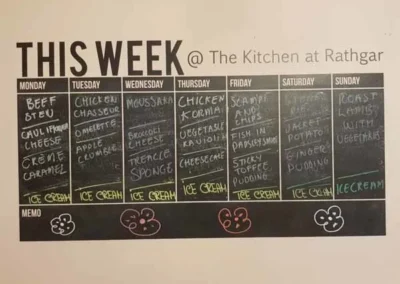 THIS WEEK @ The Kitchen at Rathgar
MONDAY TUESDAY WEDNESDAY THURSDAY FRIDAY SATURDAY SUNDAY
BEEF
STEW
CAULIFLOWER
CHEESE
CRÈME
CARAMEL
ICE CREAM
CHICKEN
CHASSEUR
OMELETTE
APPLE
CRUMBLE
ICE CREAM
MOUSSAKA
BROCCOLI
CHEESE
TREACLE
SPONGE
ICE CREAM
CHICKEN
KORMA
VEGETABLE
RAVIOLI
CHEESECAKE
ICE CREAM
SCAMPI
AND
CHIPS
FISH IN
PARSLEY SAUCE
STICKY
TOFFEE
PUDDING
ICE CREAM
PIE
JACKET
POTATO
GINGER
PUDDING
ICE CREAM
ROAST
LAMB
WITH
VEGETABLES
ICECREAM
MEMO